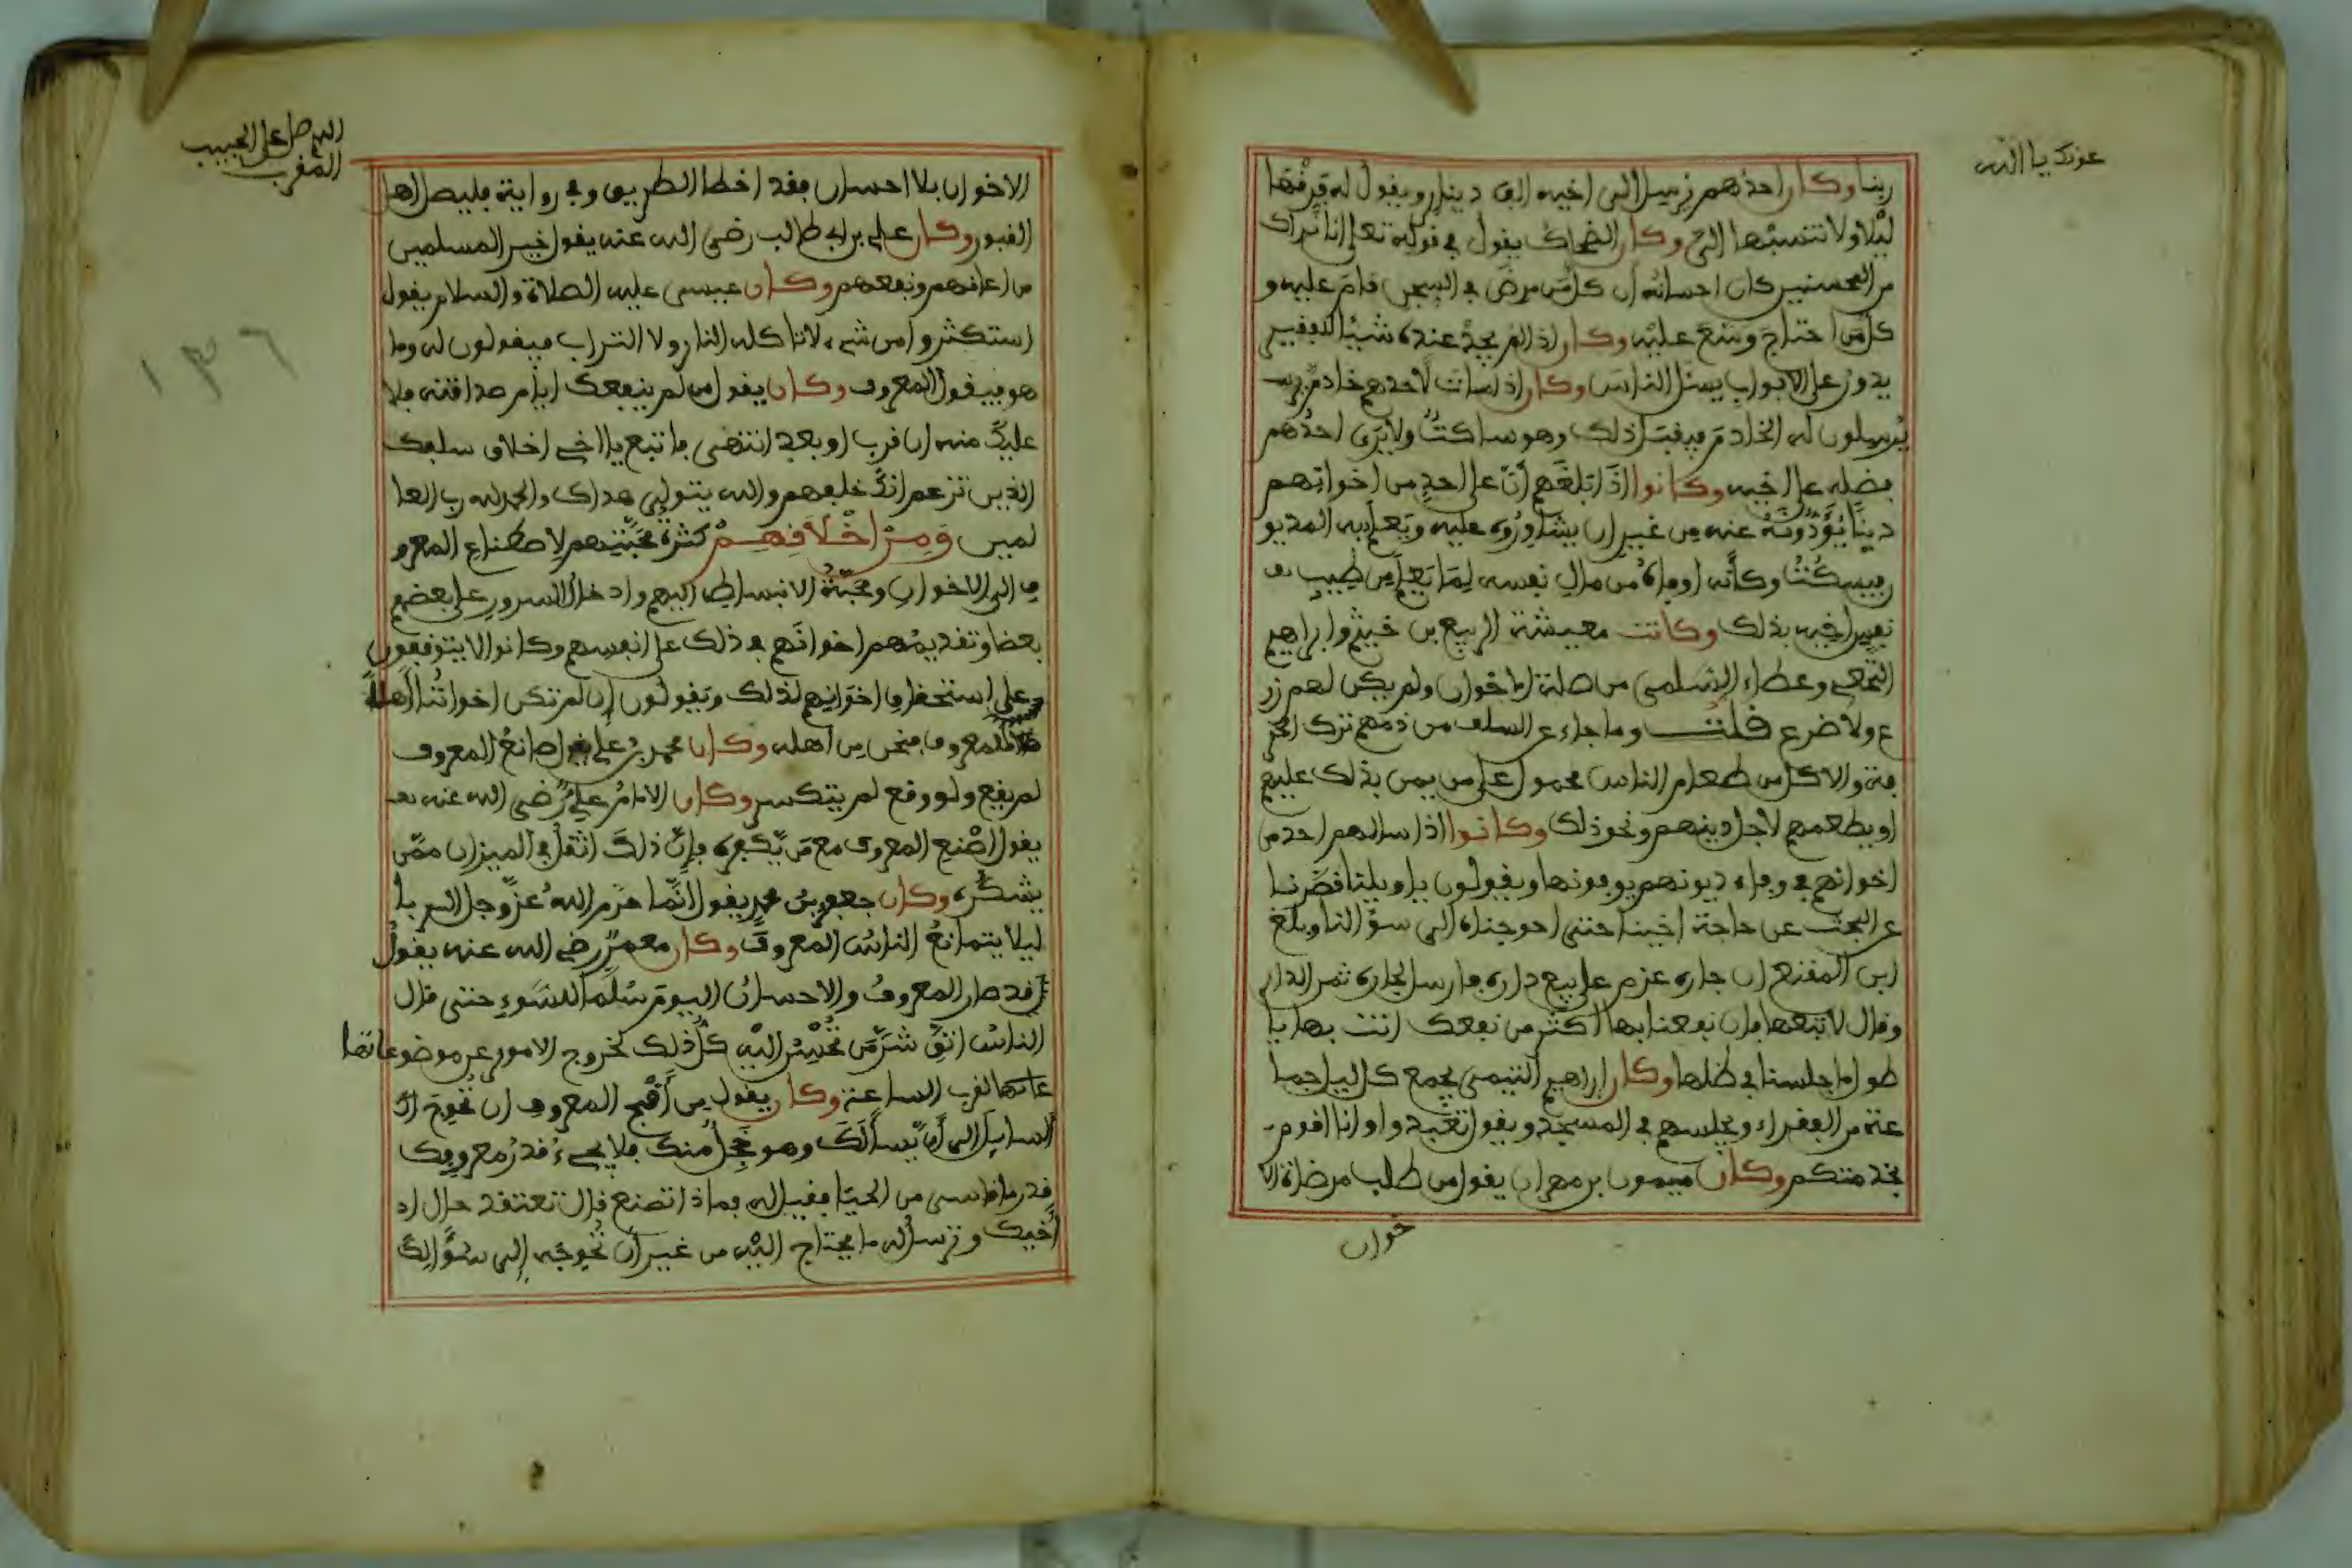 عونك يا الله
ربنا وكان احدهم يرسل الى اخيه الف دينار ويقول له فرقها
ليلا ولا تنسبها الي وكان الضحاك يقول في قوله تعلى انا نراك
من المحسنين كان احسانه ان كل من مرض في السجن قام عليه و
كل من احتاج وسع عليه وكان اذا لم يجد عنده شيئا للفقير
يدور على الابواب يسئل الناس وكان اذا مات لاحدهم خادم
يرسلون له الخادم فيقبل ذلك وهو ساكت ولا يرى احدهم
فضله على اخيه وكانوا اذا بلغهم ان على احد من اخوانهم
دينا يؤدونه عنه من غير ان يشاوروه عليه ويعلم به المديو
ن فيسكت وكأنه اوفاه من مال نفسه لما يعلم من طيب
نفس اخيه بذلك وكانت معيشة الربيع بن خيثم وابراهيم
النخعي وعطاء السلمي من صلة الاخوان ولم يكن لهم زر
ع ولا ضرع قلت وما جاء عن السلف من ذمهم ترك الحر
فة والاكل من طعام الناس محمول على من يمن بذلك عليهم
او يطعمهم لاجل دينهم ونحو ذلك وكانوا اذا سالهم احد من
اخوانهم في وفاء ديونهم يوفونها ويقولون يا ويلنا قصرنا
عن البحث عن حاجة اخينا حتى احوجناه الى سؤالنا وبلغ
ابن المقفع ان جاره عزم على بيع داره فارسل لجاره ثمن الدار
وقال لا تبعها فان نفعنا بها اكثر من نفعك انت بها يا
طول ما جلسنا في ظلها وكان ابراهيم التيمي يجمع كل ليلة جما
عة من الفقراء ويجلسهم في المسجد ويقول تعبدوا وانا اقوم
بخدمتكم وكان ميمون بن مهران يقول من طلب مرضاة الا
خوان
اللهم صل على الحبيب
المقرب
١٣٦
الاخوان بلا احسان فقد اخطا الطريق وفي رواية فليصل اهل
القبور وكان علي بن ابي طالب رضي الله عنه يقول خير المسلمين
من اعانهم ونفعهم وكان عيسى عليه الصلاة والسلام يقول
استكثروا من شيء لا تاكله النار ولا التراب فيقولون له وما
هو فيقول المعروف وكان يقول من لم ينفعك ايام صداقته فلا
عليك منه ان قرب او بعد انتهى فاتبع يا اخي اخلاق سلفك
الذين تزعم انك خلفهم والله يتولى هداك والحمد لله رب العا
لمين ومن اخلاقهم كثرة محبتهم لاصطناع المعرو
ف الى الاخوان ومحبة الانبساط اليهم وادخال السرور على بعضهم
بعضا وتقديمهم اخوانهم في ذلك على انفسهم وكانوا لا يتوقفون
على استحقاق اخوانهم لذلك ويقولون ان لم تكن اخواننا اهلا
للمعروف فنحن من اهله وكان محمد بن علي يقول صانع المعروف
لم يقع ولو وقع لم يتكسر وكان الامام علي رضي الله عنه
يقول اصنع المعروف مع من يكفره فإن ذلك اثقل في الميزان ممن
يشكره وكان جعفر بن محمد يقول انما حرم الله عز وجل الربا
ليلا يتمانع الناس المعروف وكان معمر رضي الله عنه يقول
قد صار المعروف والاحسان اليوم سلما للسوء حتى قال
الناس اتق شر من تحسن اليه كل ذلك لخروج الامور عن موضوعاتها
عاتها لقرب الساعة وكان يقول من أقبح المعروف ان تحوج
السايل الى أن يسألك وهو خجل منك فلا يجيء قدر معروفك
قدر ما قاسى من الحيا فقيل له بماذا نصنع قال تتفقد حال
أخيك وترسل له ما يحتاج اليه من غير أن تحوجه إلى سؤالك